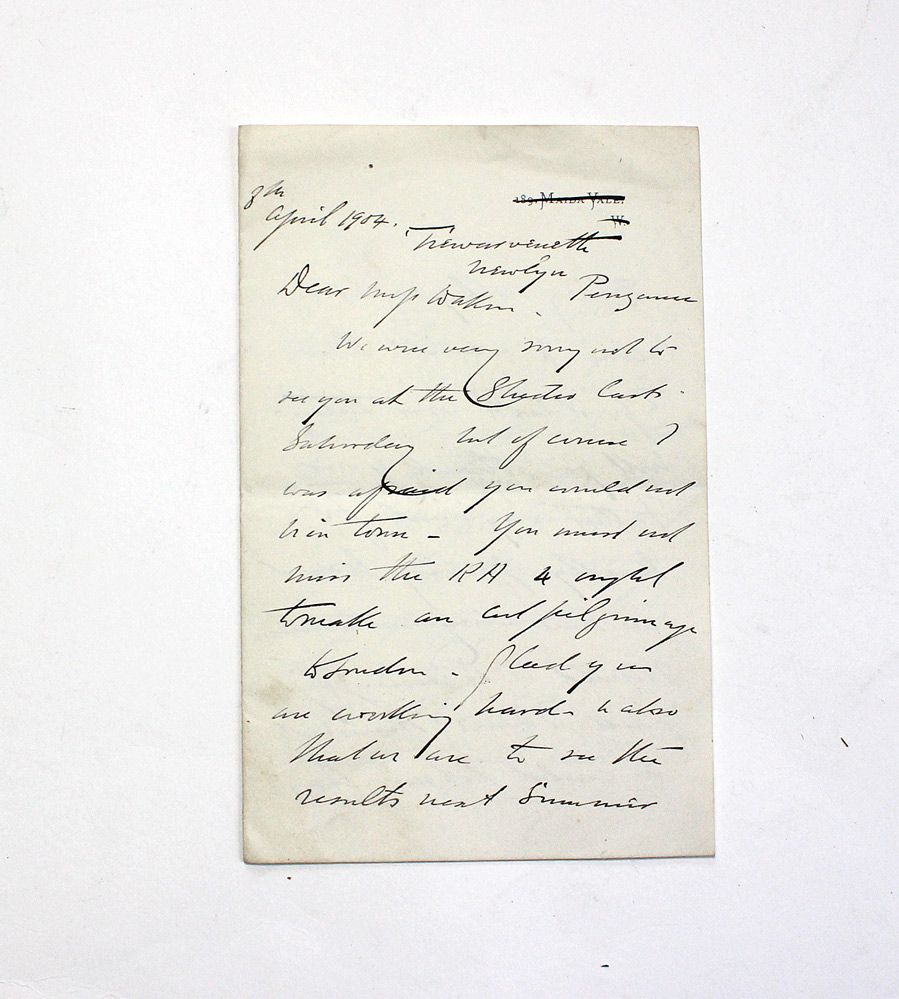 8th
April 1904.
189. MAIDA VALE.
W.
Trewarveneth
Newlyn
Penzance
Dear Miss
We were very sorry not to
see you at the Studio last
Saturday but of course I
was afraid you would not
be in town - You must not
miss the RA & ought
to make an art pilgrimage
to London - Glad you
are working hard & also
that we are to see the
results next Summer